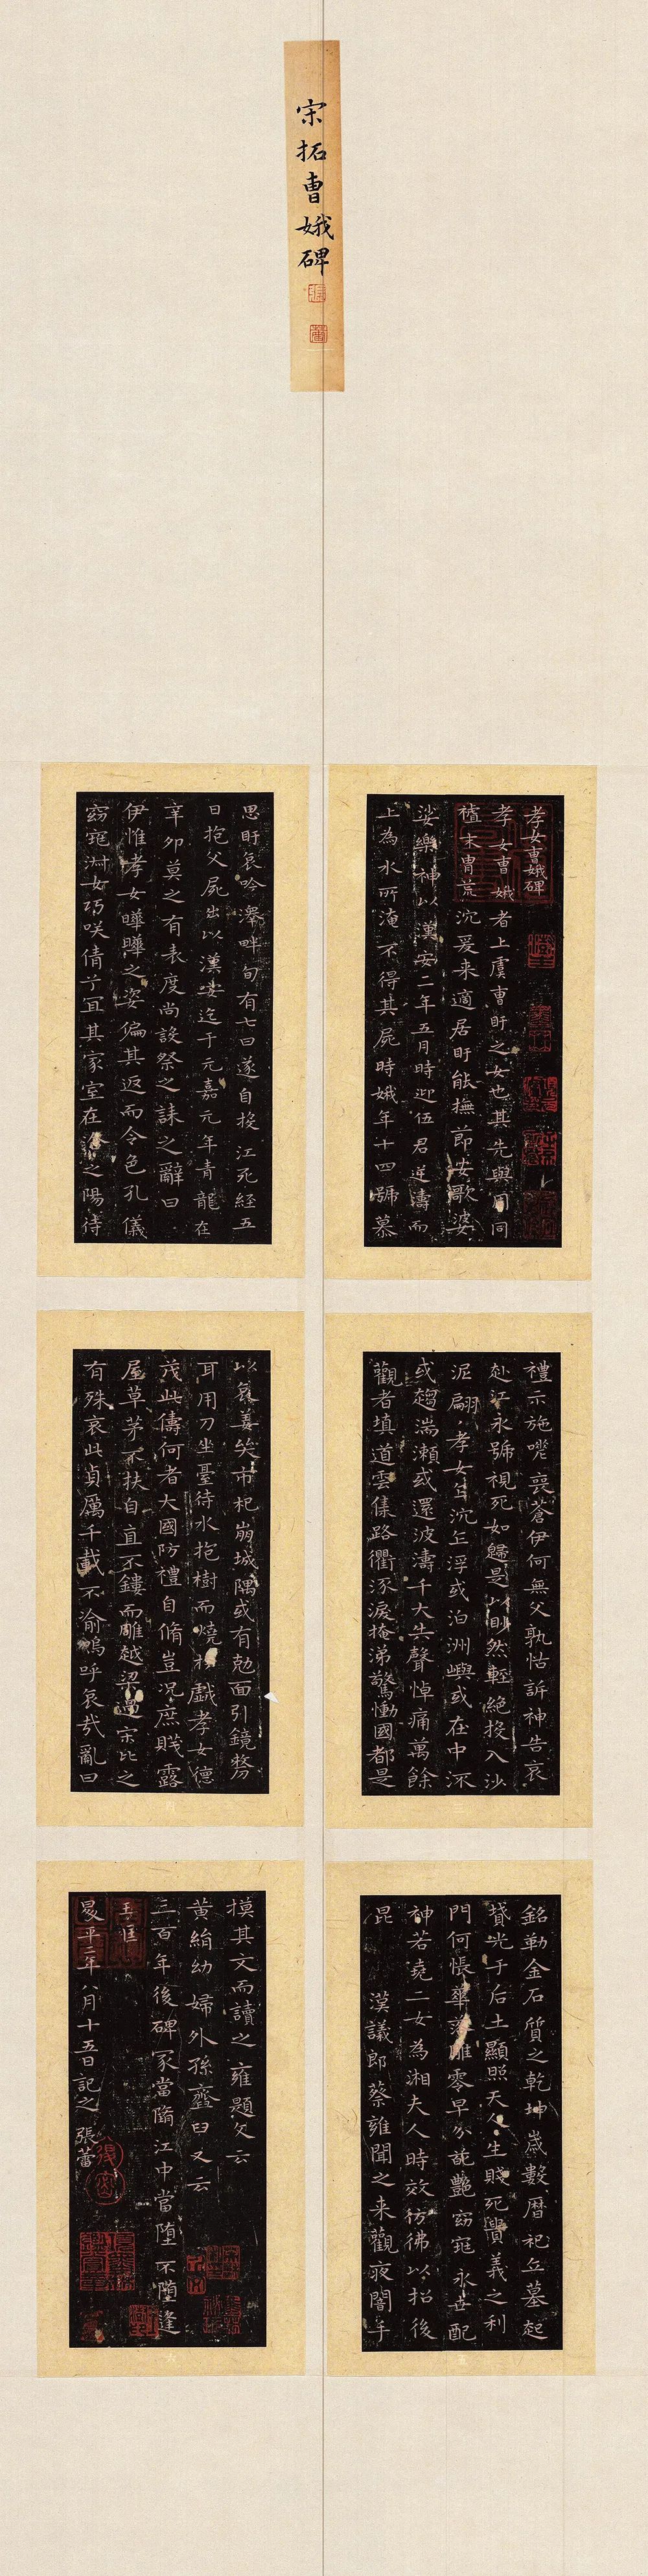 宋拓曹娥碑
孝女曹娥碑
孝女曹娥者上虞曹盱之女也其先與周同
祖末胄荒沉爰来適居盱能撫節安歌婆
娑樂神以漢安二年五月時迎伍君逆濤而
上為水所淹不得其屍時娥年十四號慕
思盱哀吟澤畔旬有七日遂自投江死經五
日抱父屍出以漢安迄于元嘉元年青龍在
辛卯莫之有表度尚設祭之誄之辭曰
伊惟孝女曄曄之姿偏其返而令色孔儀
窈窕淑女巧咲倩兮宜其家室在洽之陽待
禮示施嗟喪蒼伊何無父孰怙訴神告哀
赴江永號視死如歸是以眇然輕絕投入沙
泥翩翩孝女乍沉乍浮或泊洲嶼或在中流
或趨湍瀨或還波濤千夫失聲悼痛萬餘
觀者填道雲集路衢泳淚掩涕驚慟國都是
以哀姜哭市杞崩城隅或有勊面引鏡剺
耳用刀坐臺待水抱樹而燒於戲孝女德
茂此儔何者大國防禮自脩豈况庶賤露
屋草茅不扶自直不鏤而雕越梁過宋比之
有殊哀此貞厲千載不渝嗚呼哀哉亂曰
銘勒金石質之乾坤嵗數曆祀立墓起
墳光于后土顯照天人生賤死貴義之利
門何悵華落雕零早分葩艷窈窕永世配
神若堯二女為湘夫人時效彷彿以招後
昆 漢議郎蔡雍聞之来觀夜闇手
摸其文而讀之雍題文云
黃絹幼婦外孫齏臼又云
三百年後碑冢當墮江中當墮不墮逢
王匡
昇平二年八月十五日記之 張蕾